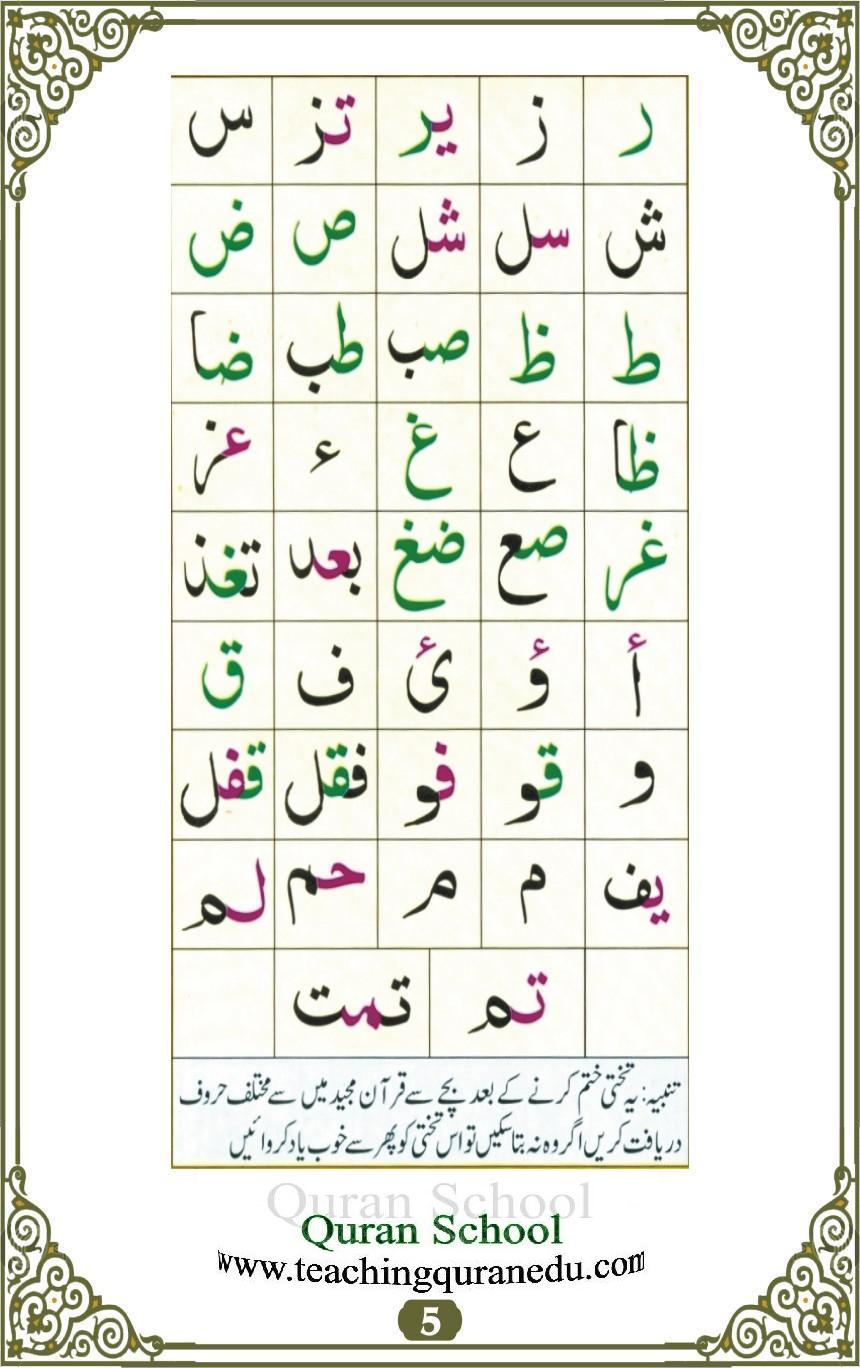 ر ز یر تز س
ش سل شل ص ض
ط ظ صب طب ضا
ظا ع غ ء عز
غر صع ضغ بعد تغذ
أ ؤ ئ ف ق
و قو فو فقل قفل
یف م م حم لم
تم تمت
تنبیہ: یہ تختی ختم کرنے کے بعد بچے سے قرآن مجید میں سے مختلف حروف
دریافت کریں اگر وہ نہ بتا سکیں تو اس تختی کو پھر سے خوب یاد کروائیں
Quran School
Quran School
www.teachingquranedu.com
5